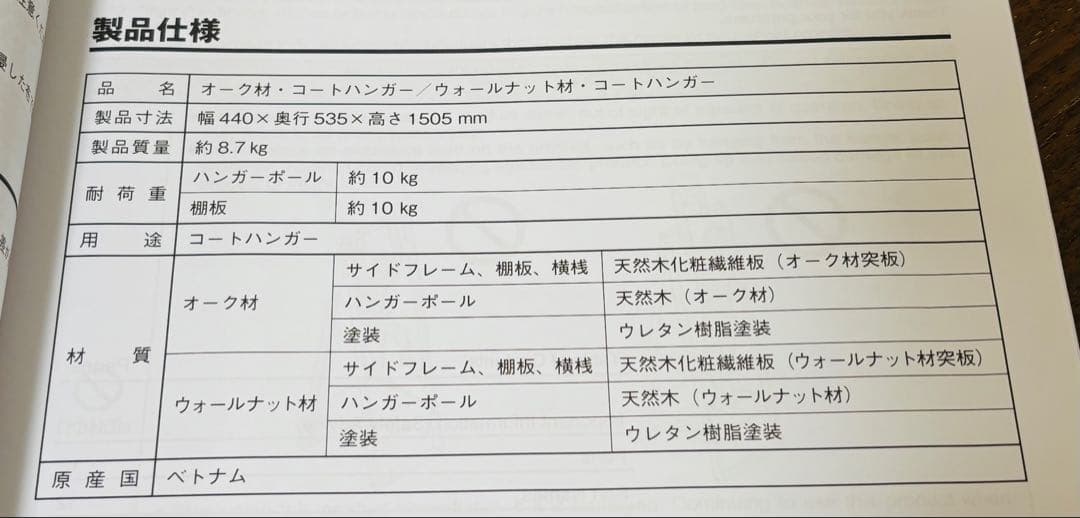 製品仕様
品名 オーク材・コートハンガー／ウォールナット材・コートハンガー
製品寸法 幅440×奥行535×高さ1505 mm
製品質量 約8.7 kg
耐荷重 ハンガーポール 約10 kg
棚板 約10 kg
用途 コートハンガー
材質 オーク材 サイドフレーム、棚板、横桟 天然木化粧繊維板（オーク材突板）
ハンガーポール 天然木（オーク材）
塗装 ウレタン樹脂塗装
ウォールナット材 サイドフレーム、棚板、横桟 天然木化粧繊維板（ウォールナット材突板）
ハンガーポール 天然木（ウォールナット材）
塗装 ウレタン樹脂塗装
原産国 ベトナム